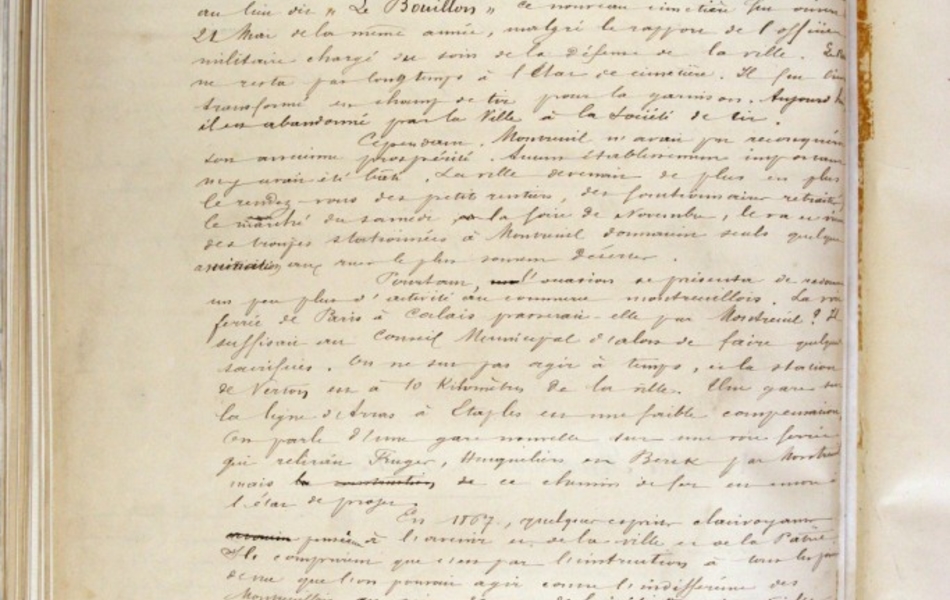 au lieu dit " Le Bouillon " ce nouveau cimetière fut ouvert
22 Mai de la même année, malgré le rapport de l'officier
militaire chargé du soin de la défense de la ville. Le
ne resta pas longtemps à l'état de cimetière. Il fut
transformé en champ de tir pour la garnison. Aujourd'hui
il est abandonné par la Ville à la Société de tir.
Cependant, Montreuil n'avait pu reconquérir
son ancienne prospérité. Aucun établissement important
n'y avait été bâti. La ville devenait de plus en plus
le rendez-vous des petits rentiers, des fonctionnaires retraités
le marché du samedi, la foire de Novembre, le va et
des troupes stationnées à Montreuil donnaient seuls quelque
animation aux rues le plus souvent désertes.
Pourtant, l'occasion se présenta de
un peu plus d'activité au commerce montreuillois. La voie
ferrée de Paris à Calais passerait-elle par Montreuil ? Il
suffisait au Conseil Municipal d'alors de faire quelques
sacrifices. On ne sut pas agir à temps, et la station
de Verton est à 10 kilomètres de la ville. Une gare sur
la ligne d'Arras à Etaples est une faible compensation
On parle d'une gare nouvelle sur une voie ferrée
qui relierait Fruges, Hucqueliers et Berck par Montreuil
mais la construction de ce chemin de fer est encore à
l'état de projet.
En 1867, quelques esprits clairvoyants
pensaient à l'avenir et de la ville et de la Patrie.
Ils comprirent que c'est par l'instruction à tous les
que l'on pouvait agir contre l'indifférence des